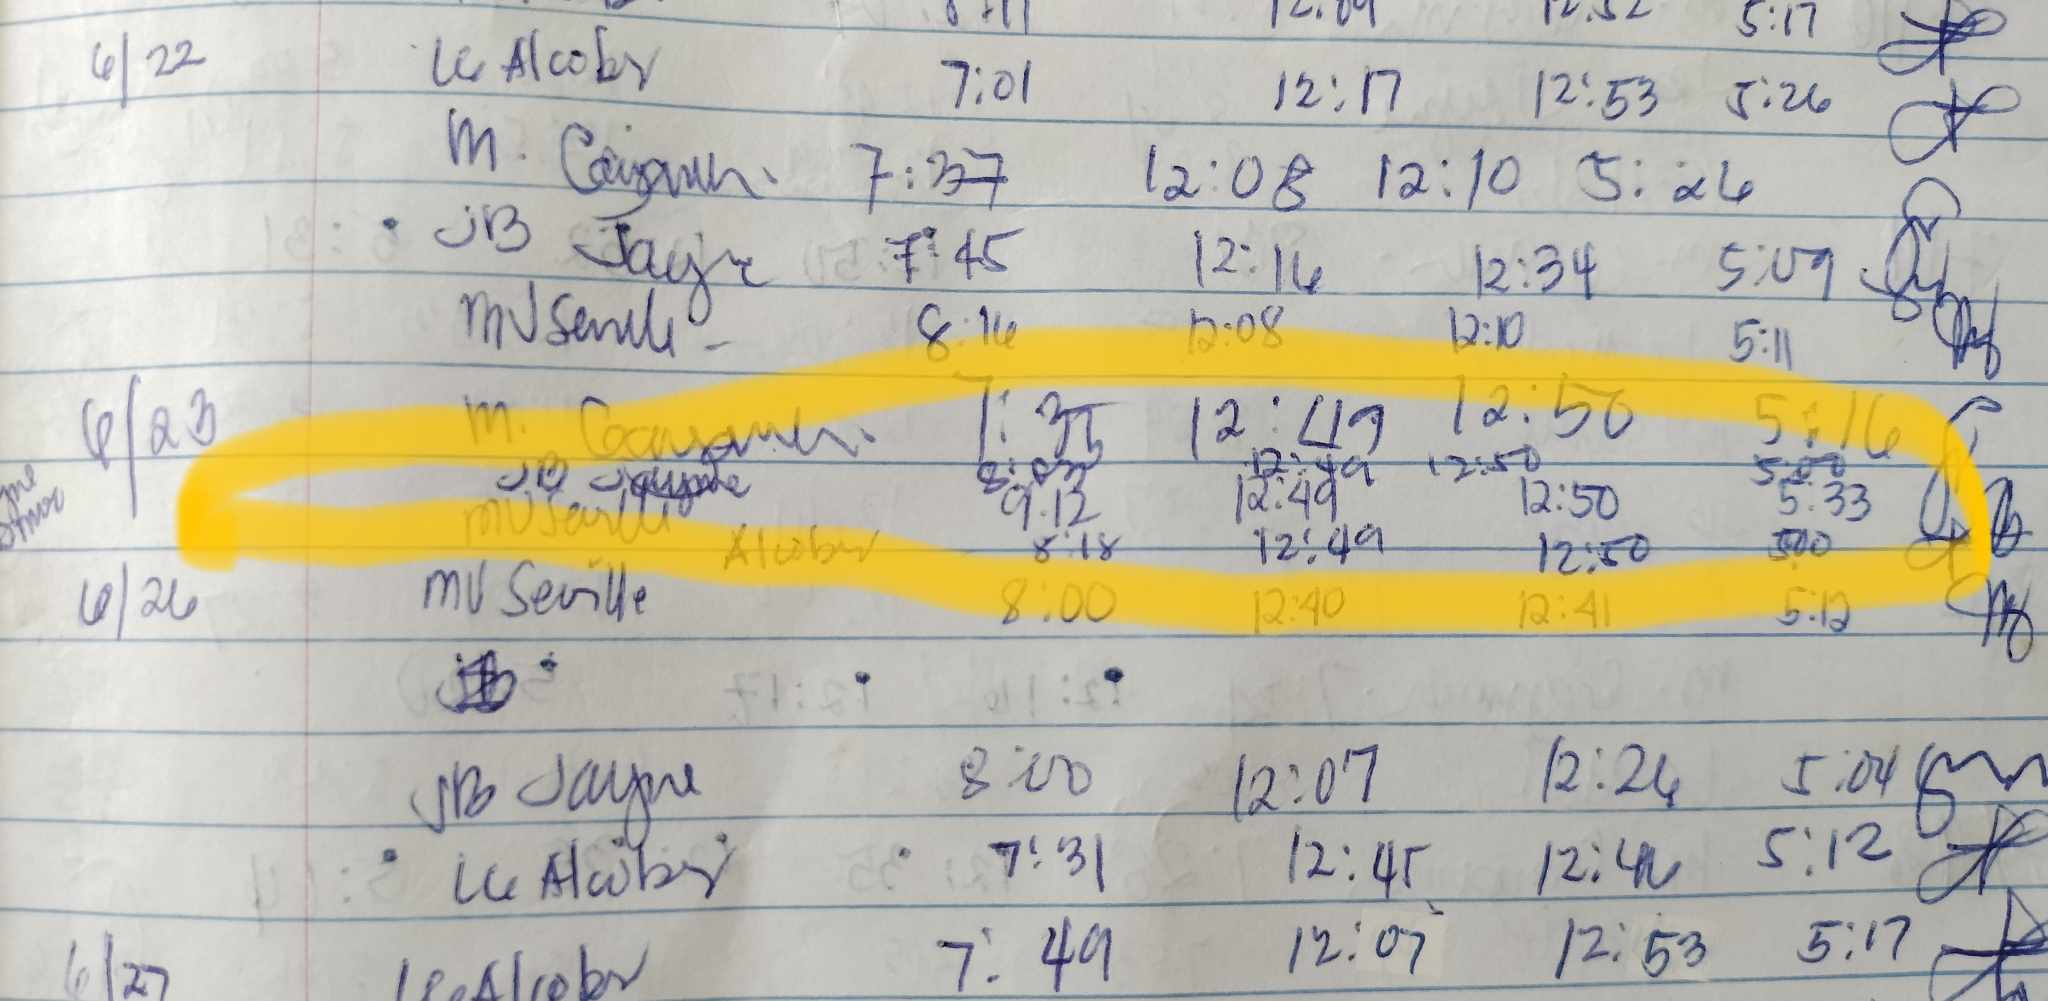 12:09 12:52 5:17
6/22 Alcober 7:01 12:17 12:53 5:26
M. 7:37 12:08 12:10 5:26
JB Jayne 7:45 12:16 12:34 5:09
MV Seville 8:16 12:08 12:10 5:11
6/23 M. 7:35 12:49 12:50 5:16
JB Jayne 12:49 12:50
MV Seville 9:12 12:49 12:50 5:33
Alcober 8:18 12:49 12:50 5:00
6/26 MV Seville 8:00 12:40 12:41 5:12
JB Jayne 8:00 12:07 12:26 5:04
Alcober 7:31 12:45 12:46 5:12
6/27 Alcober 7:49 12:07 12:53 5:17